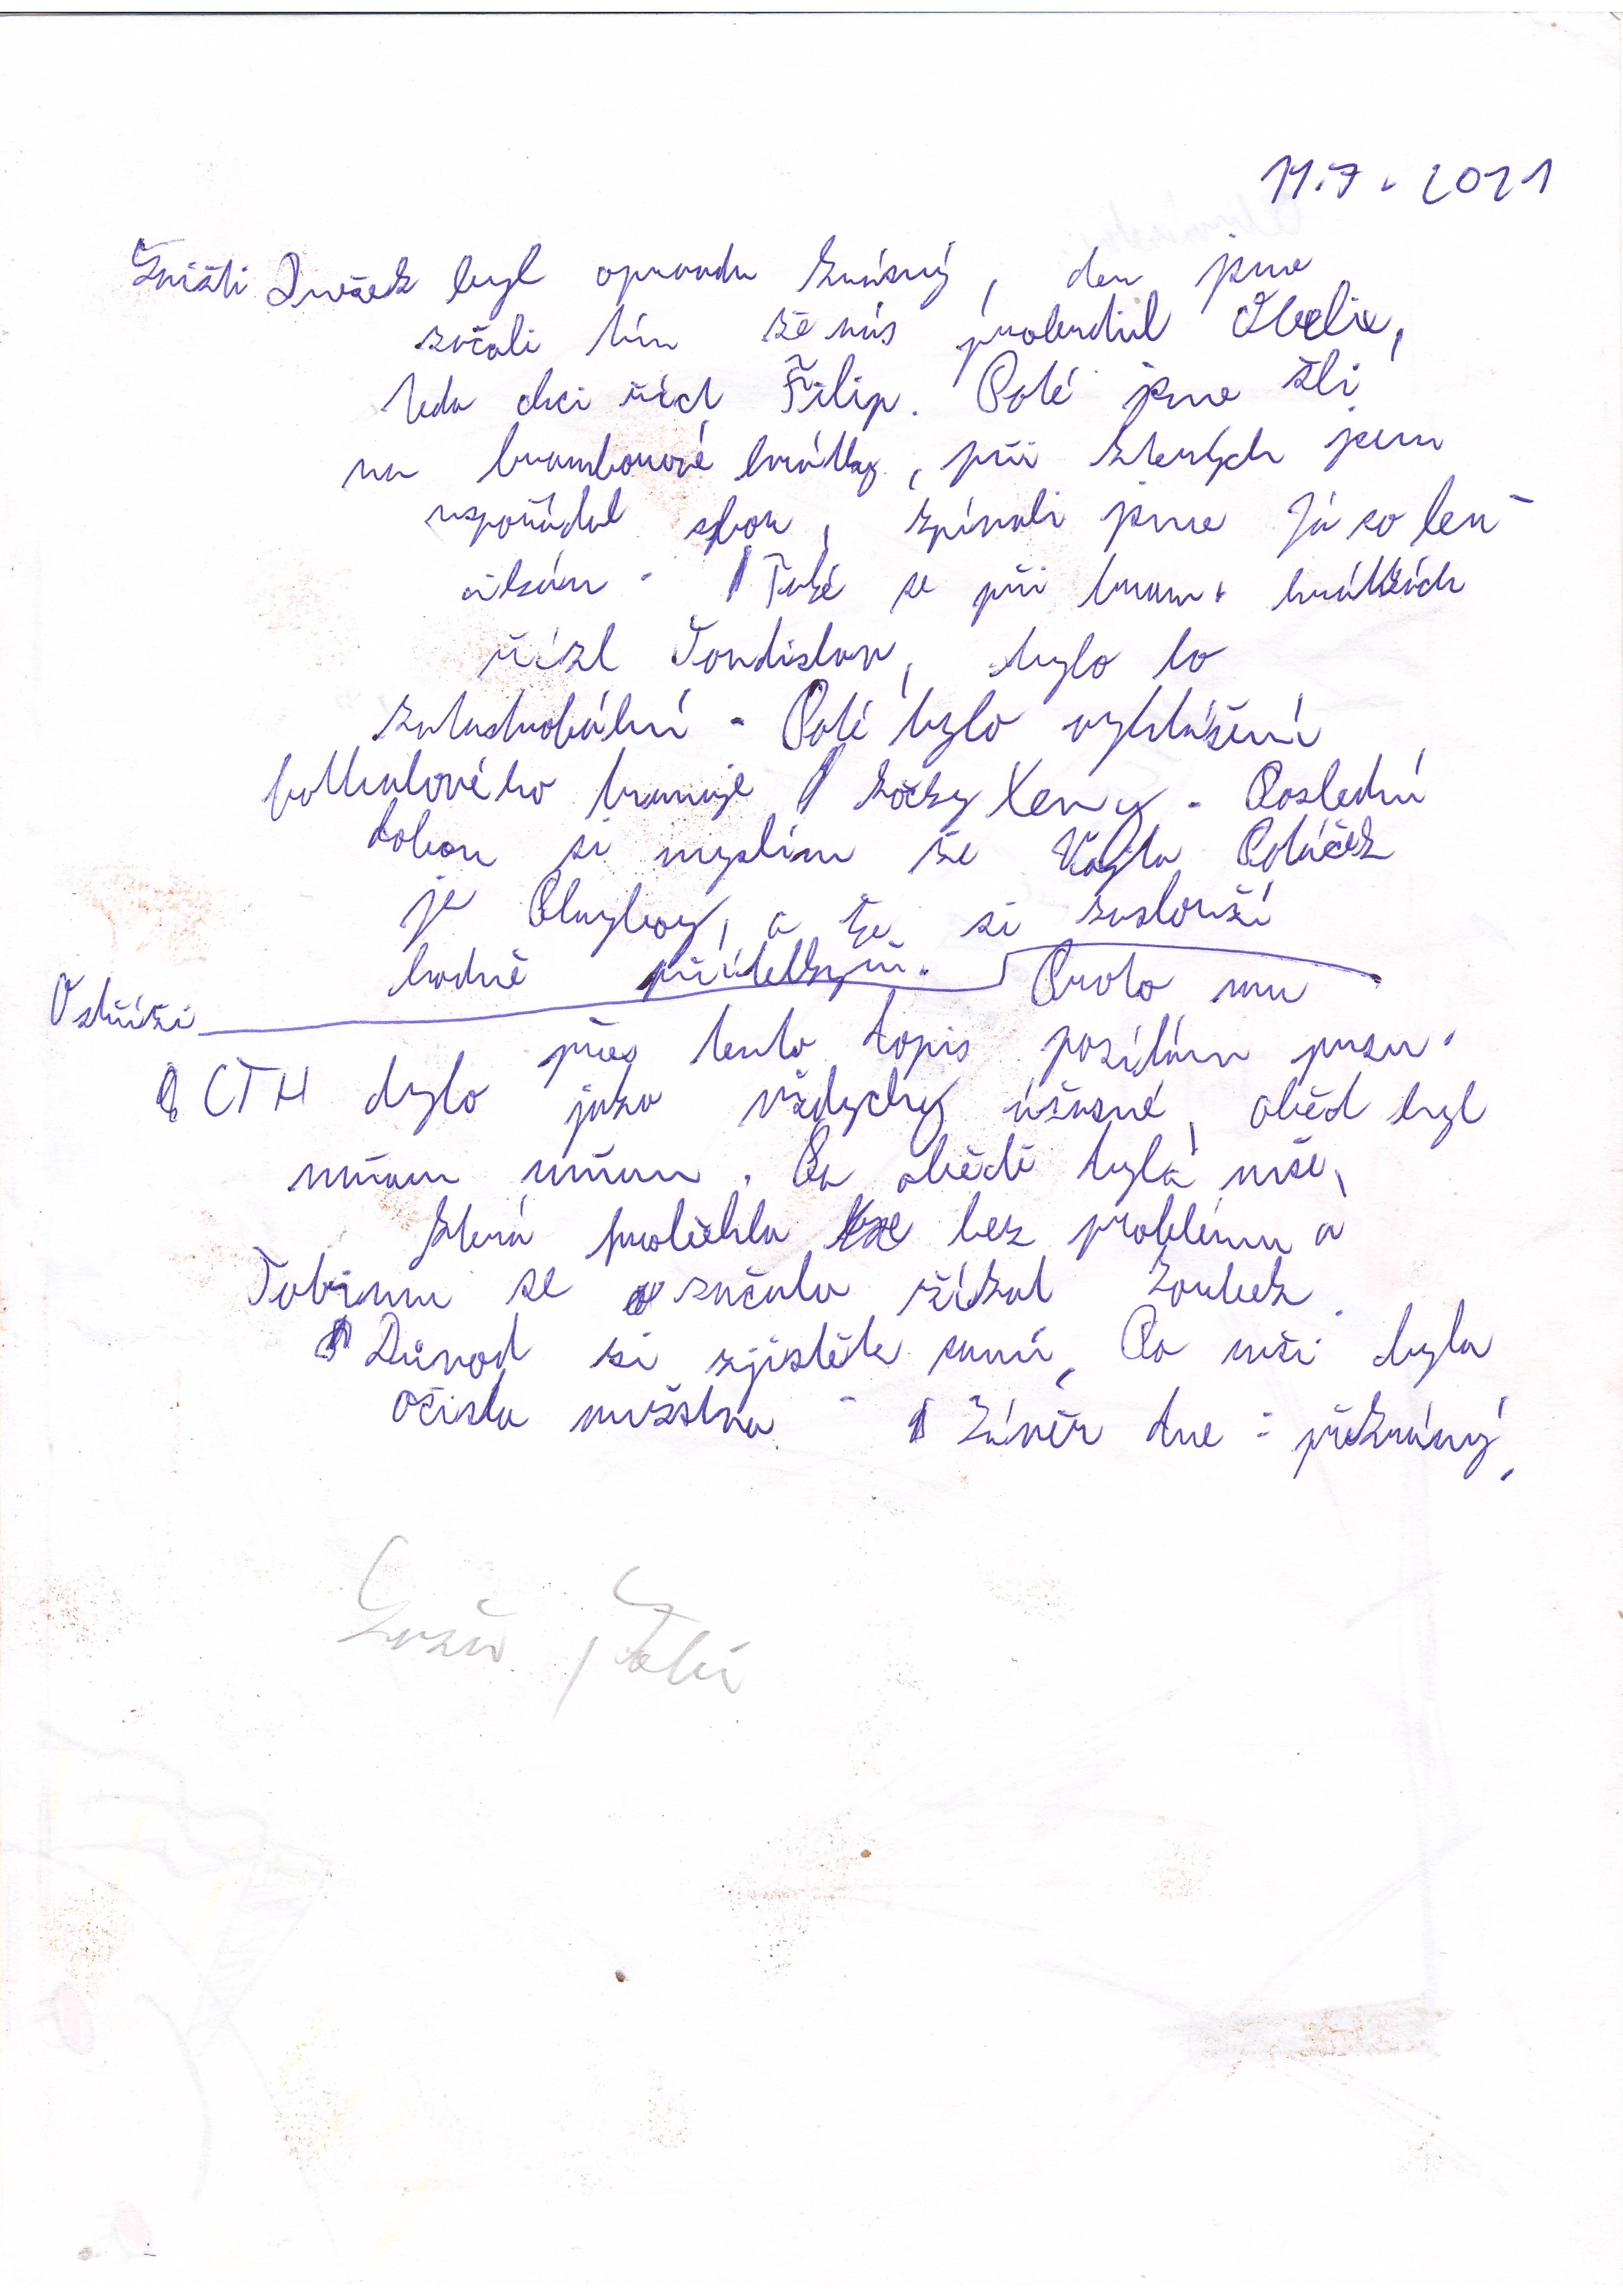 11.7. 2021
Dnešek byl opravdu krásný, den jsme
začali tím že nás probudil Obelix,
teda chci říct Filip. Poté jsme šli
na bramborové hrátky, při kterých jsem
uspořádal sbor, zpívali jsme Já so ten
cikán. Také se při bram. hrátkách
řízl Tondislav, bylo to
katastrofální. Poté bylo vyhlášení
fotbalového turnaje kočky Xeny. Poslední
dobou si myslím že Vojta Poláček
je Playboy, a že si zaslouží
hodně přítelkyň. Proto mu
přes tento dopis posílám pusu.
CTH bylo jako vždycky úžasné, oběd byl
mňam mňam. Po obědě byla mše,
která proběhla bez problému a
Tobimu se začalo říkat Zoubek.
Důvod si zjistěte sami, Po mši byla
Očista mužstva. Závěr dne: překrásný.